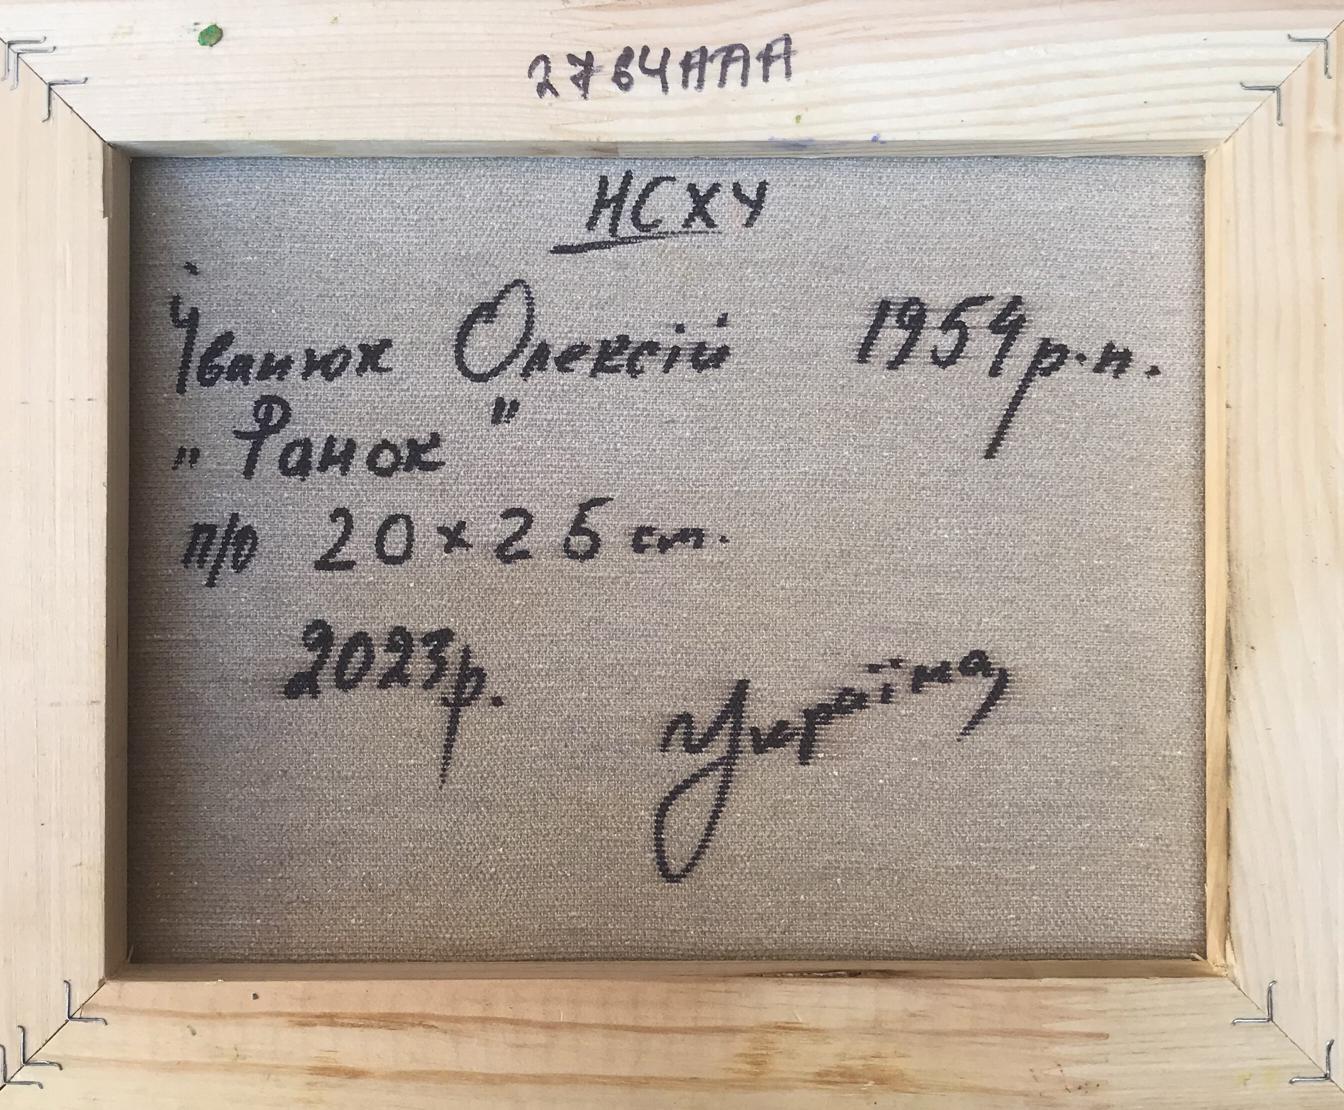 2764AAA
НСХУ
Іванюк Олексій 1954 р.н.
„Ранок"
п/о 20 х 25 см.
2023р.
Україна